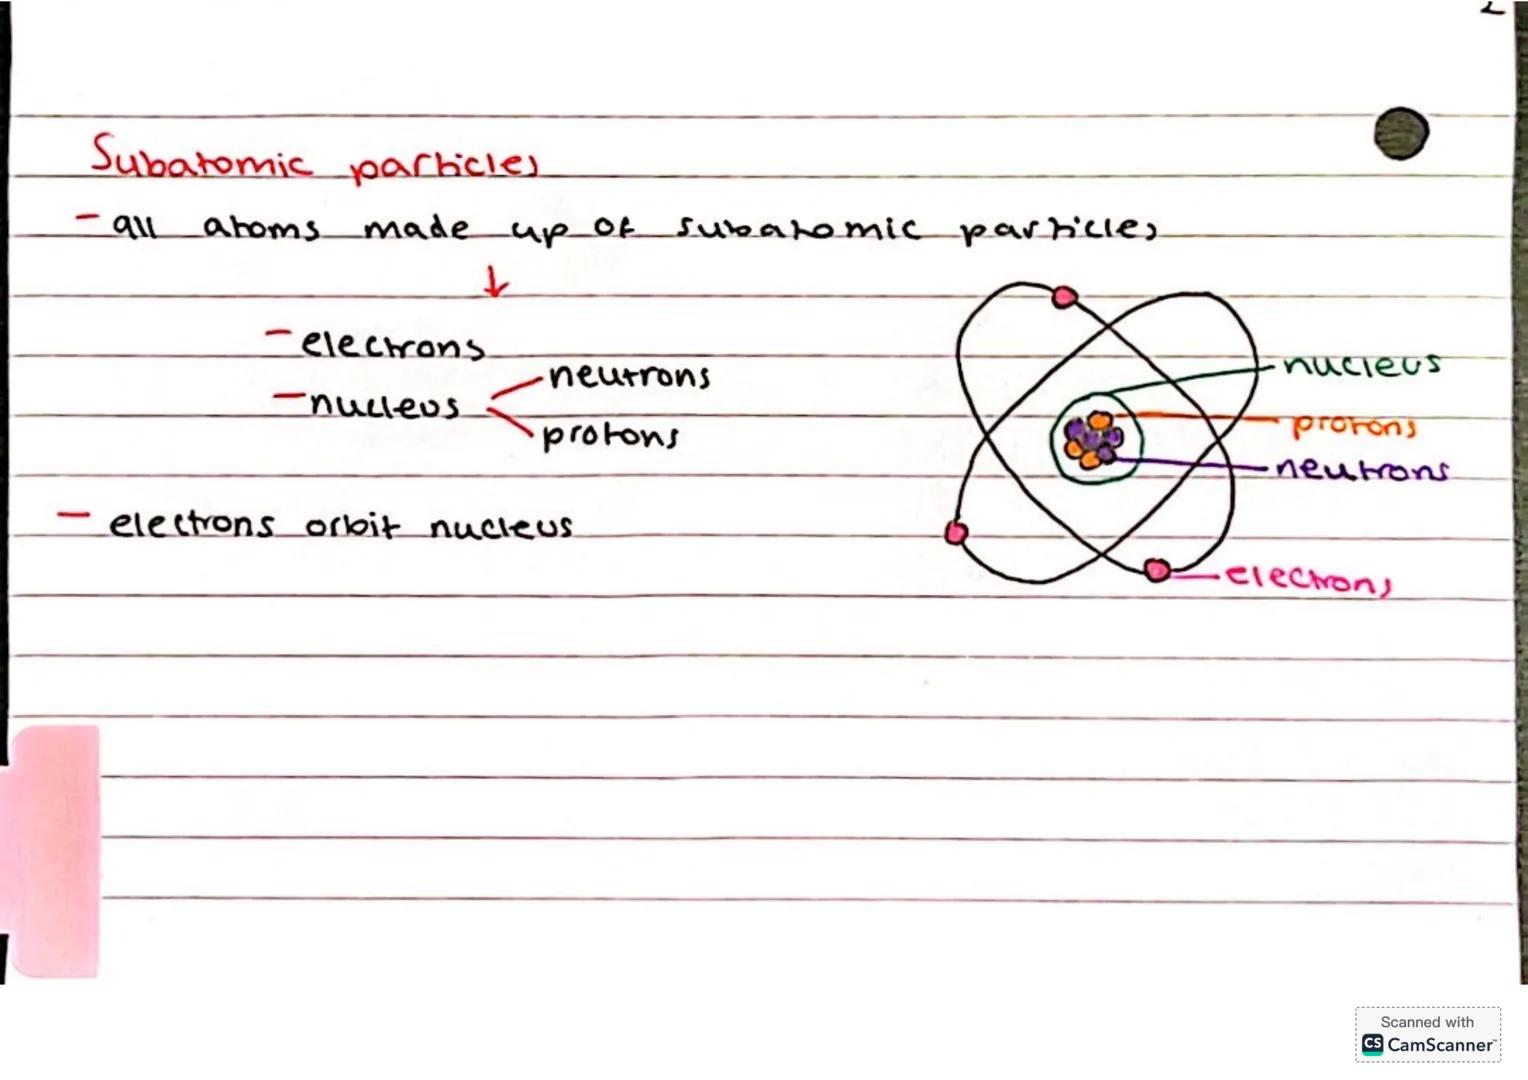 Subatomic particles
- all atoms made up of subatomic particles
↓
- electrons
- nucleus
neutrons
protons
- electrons orbit nucleus
nucleus
protons
neutrons
electrons
Scanned with
CS CamScanner